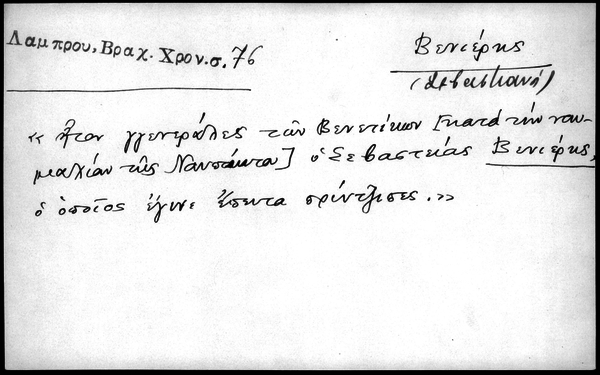 Λαμπρου, Βραχ. Χρον. σ. 76
Βενιέρης
(Σεβαστιανὸς)
« ἦτον γγενεράλες τῶν Βενετίκων [κατὰ τὴν ναυ-
μαχίαν τῆς Ναυπάκτου] ὁ Σεβαστιὰς Βενιέρης,
ὁ ὁποῖος ἔγινε ἔπειτα πρίντζιπες. »